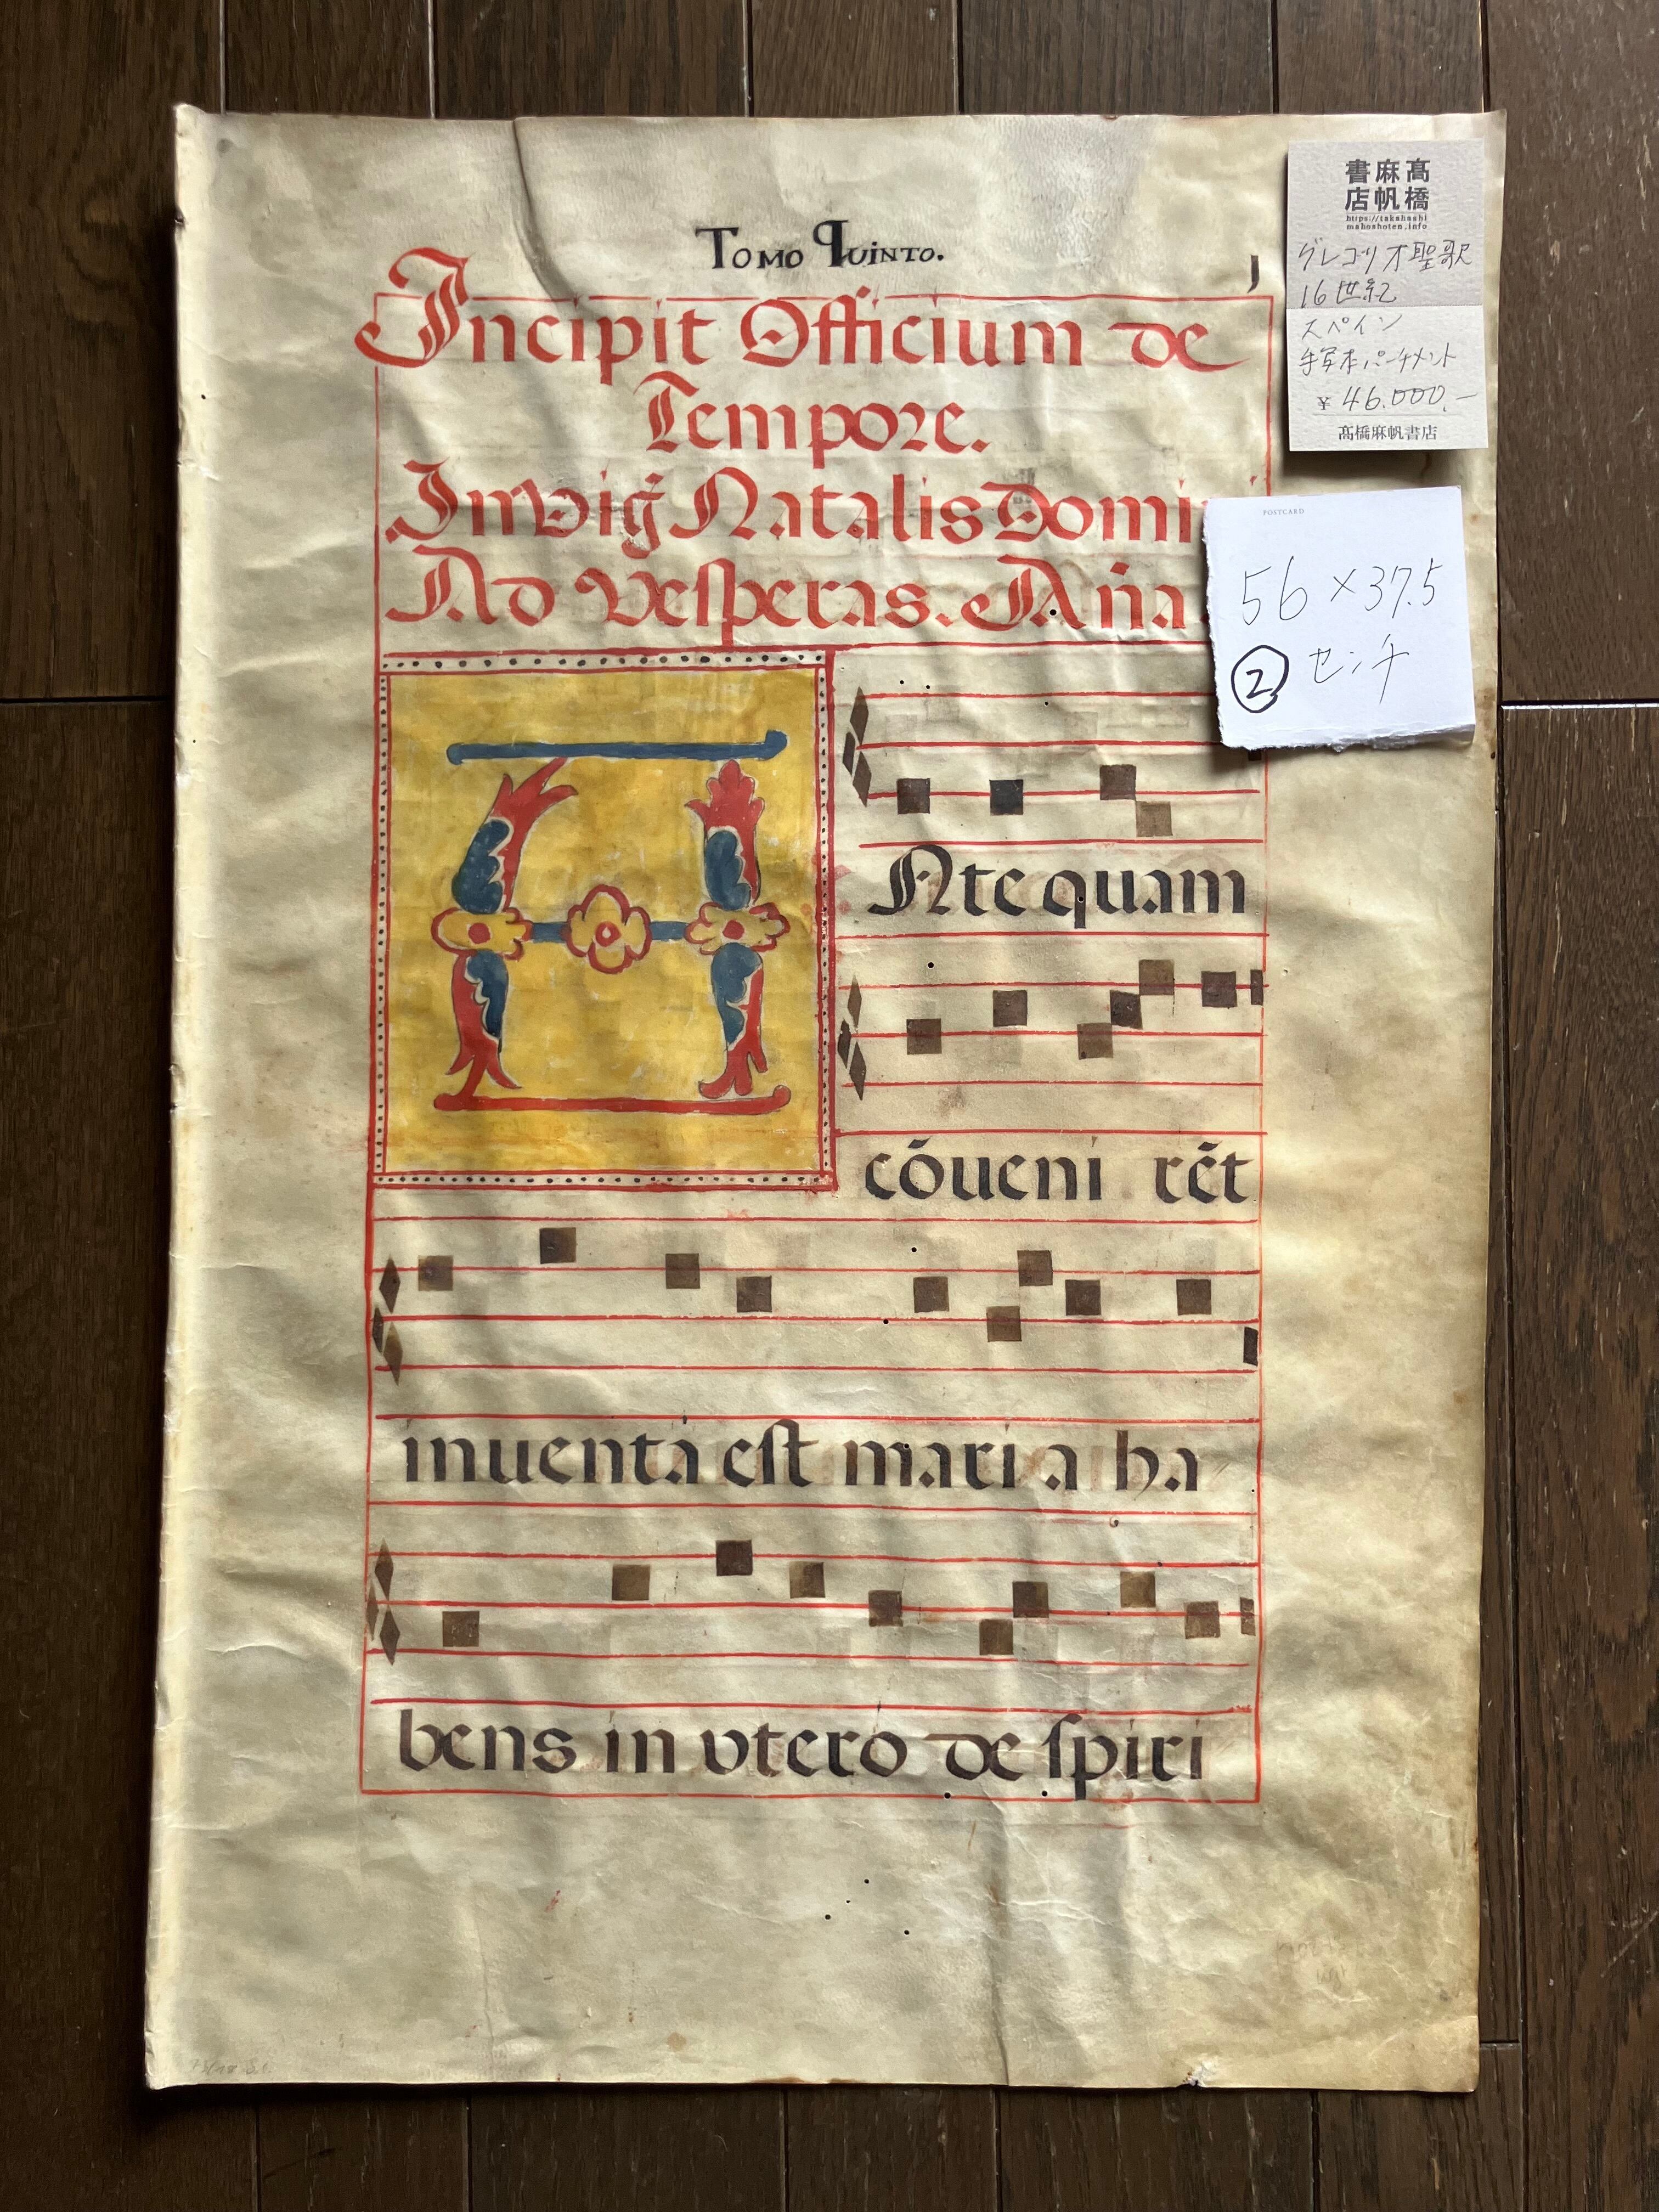 Tomo Quinto.
Incipit Officium de
Tempore.
In Vig̃ Natalis Domi
Ad Vesperas. Aña
Ante quam
cōueni rēt
inuenta est mari a ha
bens in vtero de spiri
髙橋
麻帆
書店
https://takahashi
mahoshoten.info
グレゴリオ聖歌
16世紀
スペイン
手写本パーチメント
¥46,000.-
髙橋麻帆書店
POSTCARD
56×37.5
② センチ